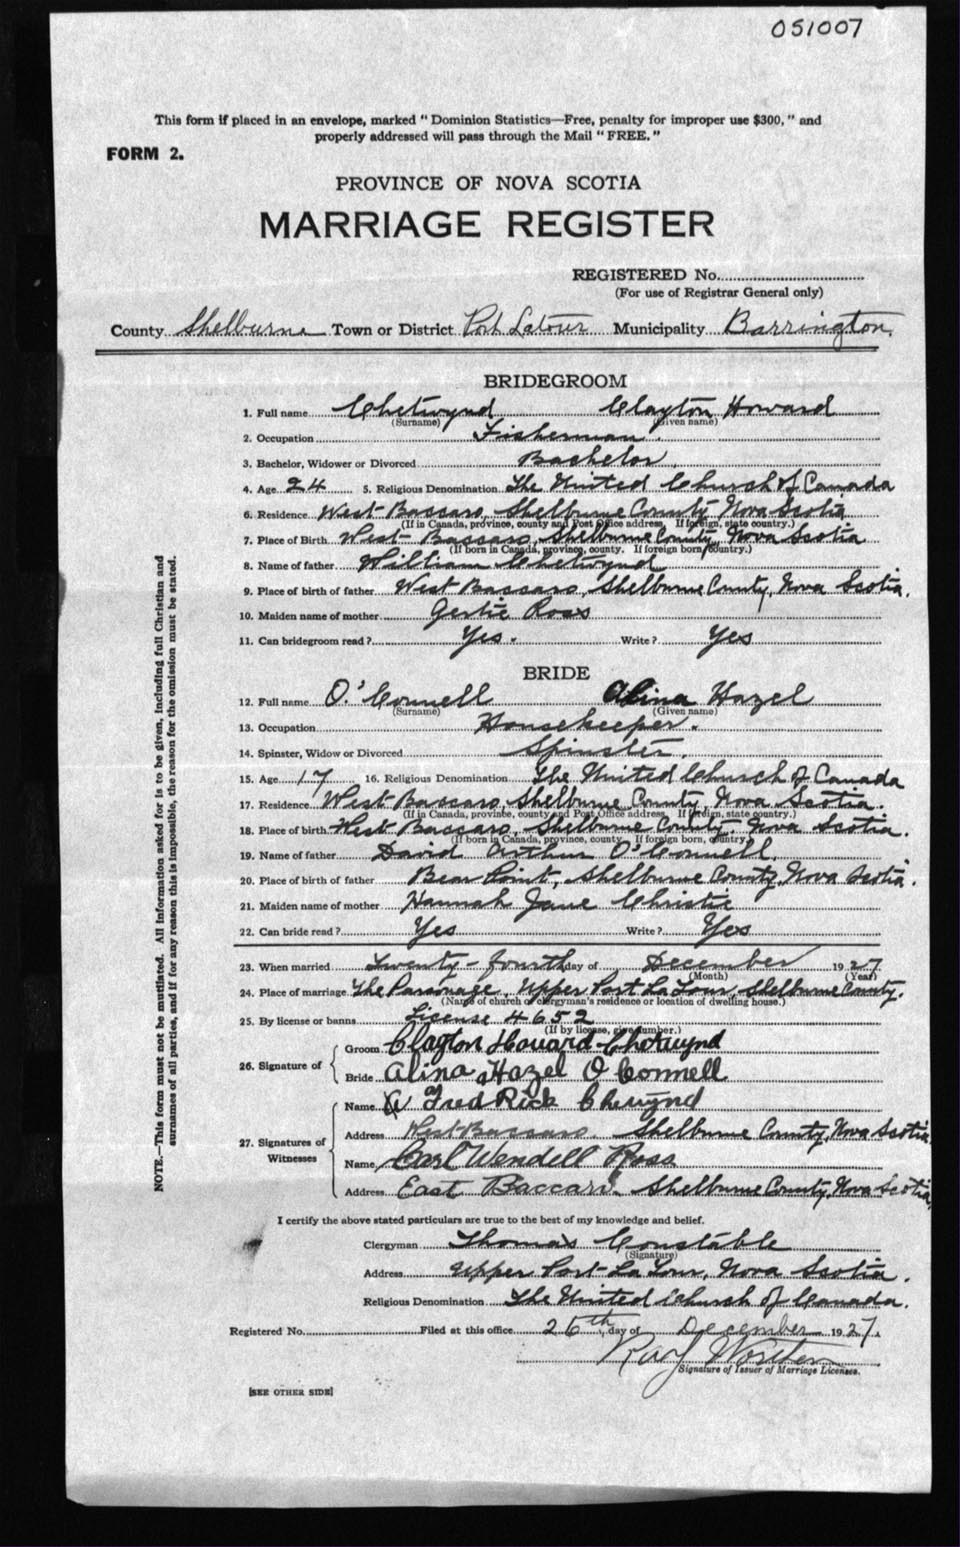 051007
This form if placed in an envelope, marked "Dominion Statistics—Free, penalty for improper use $300," and
properly addressed will pass through the Mail "FREE."
FORM 2.
PROVINCE OF NOVA SCOTIA
MARRIAGE REGISTER
REGISTERED No.
(For use of Registrar General only)
County Shelburne Town or District Port Latour Municipality Barrington.
BRIDEGROOM
1. Full name Chetwynd Clayton Howard
(Surname) (Given name)
2. Occupation Fisherman.
3. Bachelor, Widower or Divorced Bachelor.
4. Age 24 5. Religious Denomination The United Church of Canada
6. Residence West Baccaro, Shelburne County, Nova Scotia
(If in Canada, province, county and Post Office address. If foreign, state country.)
7. Place of Birth West Baccaro, Shelburne County, Nova Scotia
(If born in Canada, province, county. If foreign born, country.)
8. Name of father William Chetwynd
9. Place of birth of father West Baccaro, Shelburne County, Nova Scotia.
10. Maiden name of mother Gertie Ross
11. Can bridegroom read? Yes. Write? Yes
BRIDE
12. Full name O'Connell Alina Hazel
(Surname) (Given name)
13. Occupation Housekeeper.
14. Spinster, Widow or Divorced Spinster.
15. Age 17 16. Religious Denomination The United Church of Canada
17. Residence West Baccaro, Shelburne County, Nova Scotia.
(If in Canada, province, county and Post Office address, If foreign, state country.)
18. Place of birth West Baccaro, Shelburne County, Nova Scotia.
(If born in Canada, province, county. If foreign born, country.)
19. Name of father David Arthur O'Connell.
20. Place of birth of father Bear Point, Shelburne County, Nova Scotia.
21. Maiden name of mother Hannah Jane Christie
22. Can bride read? Yes Write? Yes
23. When married Twenty-fourth day of December 1927
(Month) (Year)
24. Place of marriage The Parsonage, Upper Port La Tour, Shelburne County.
(Name of church or clergyman's residence or location of dwelling house.)
25. By license or banns License 4652
(If by license, give number.)
26. Signature of
Groom Clayton Howard Chetwynd
Bride Alina Hazel O Connell
27. Signatures of Witnesses
Name Fred Rick Chewynd
Address West Baccaro. Shelburne County, Nova Scotia
Name Carl Wendell Ross
Address East Baccaro. Shelburne County, Nova Scotia,
I certify the above stated particulars are true to the best of my knowledge and belief.
Clergyman Thomas Constable
(Signature)
Address Upper Port La Tour, Nova Scotia.
Religious Denomination The United Church of Canada.
Registered No. Filed at this office 26th, day of December 1927.
Signature of Issuer of Marriage Licenses.
[SEE OTHER SIDE]
NOTE.—This form must not be mutilated. All information asked for is to be given, including full Christian and
surnames of all parties, and if for any reason this is impossible, the reason for the omission must be stated.